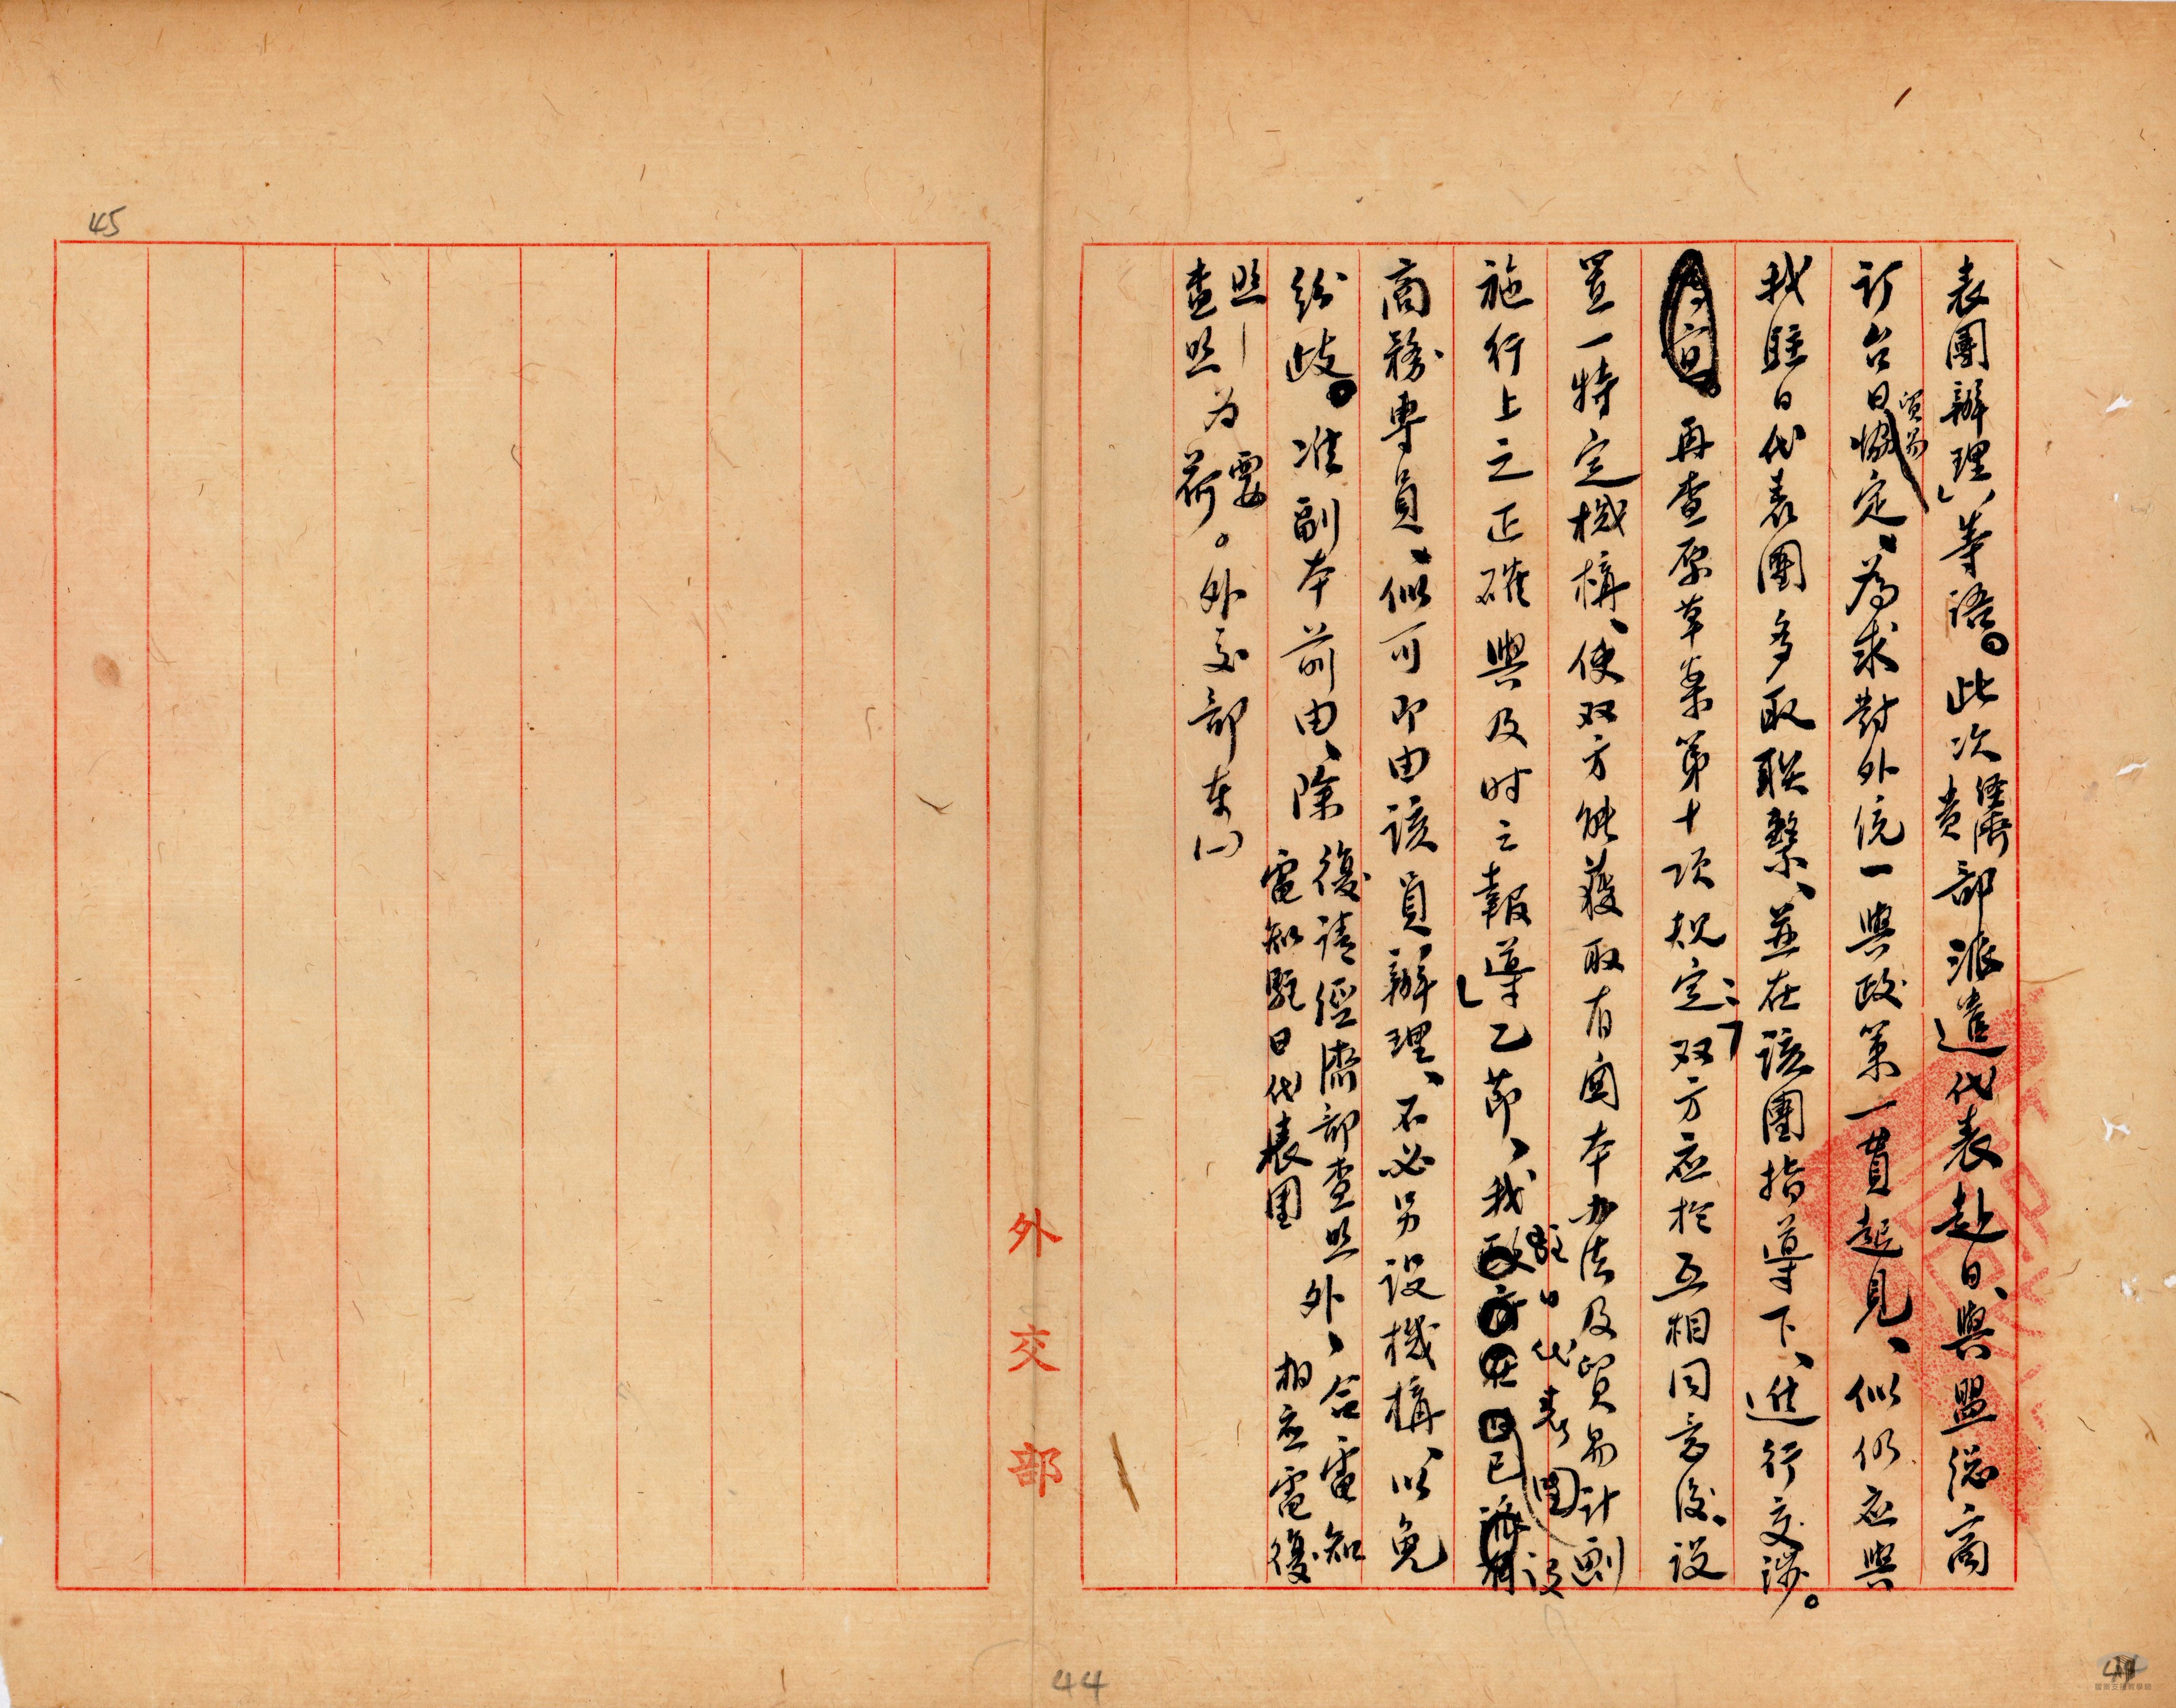 表團辦理」等語。此次經濟貴部派遣代表赴日、與盟總商
訂台日貿易協定、為求對外統一與政策一貫起見、似仍应與
我駐日代表團多取联繫、並在該團指導下、進行交涉。
再查原草案第十項規定：「双方应於互相同意後、設
置一特定機構、使双方能獲取有関本办法及貿易計劃
施行上之正確與及时之報導」乙節、我駐日代表團已設有
商務專員、似可即由該員辦理、不必另設機構、以免
紛歧。准副本前由、除復請經濟部查照外、合電知
電知駐日代表團 相应電復
照
查照為荷。外交部東(一)
要
外交部
45
44
44